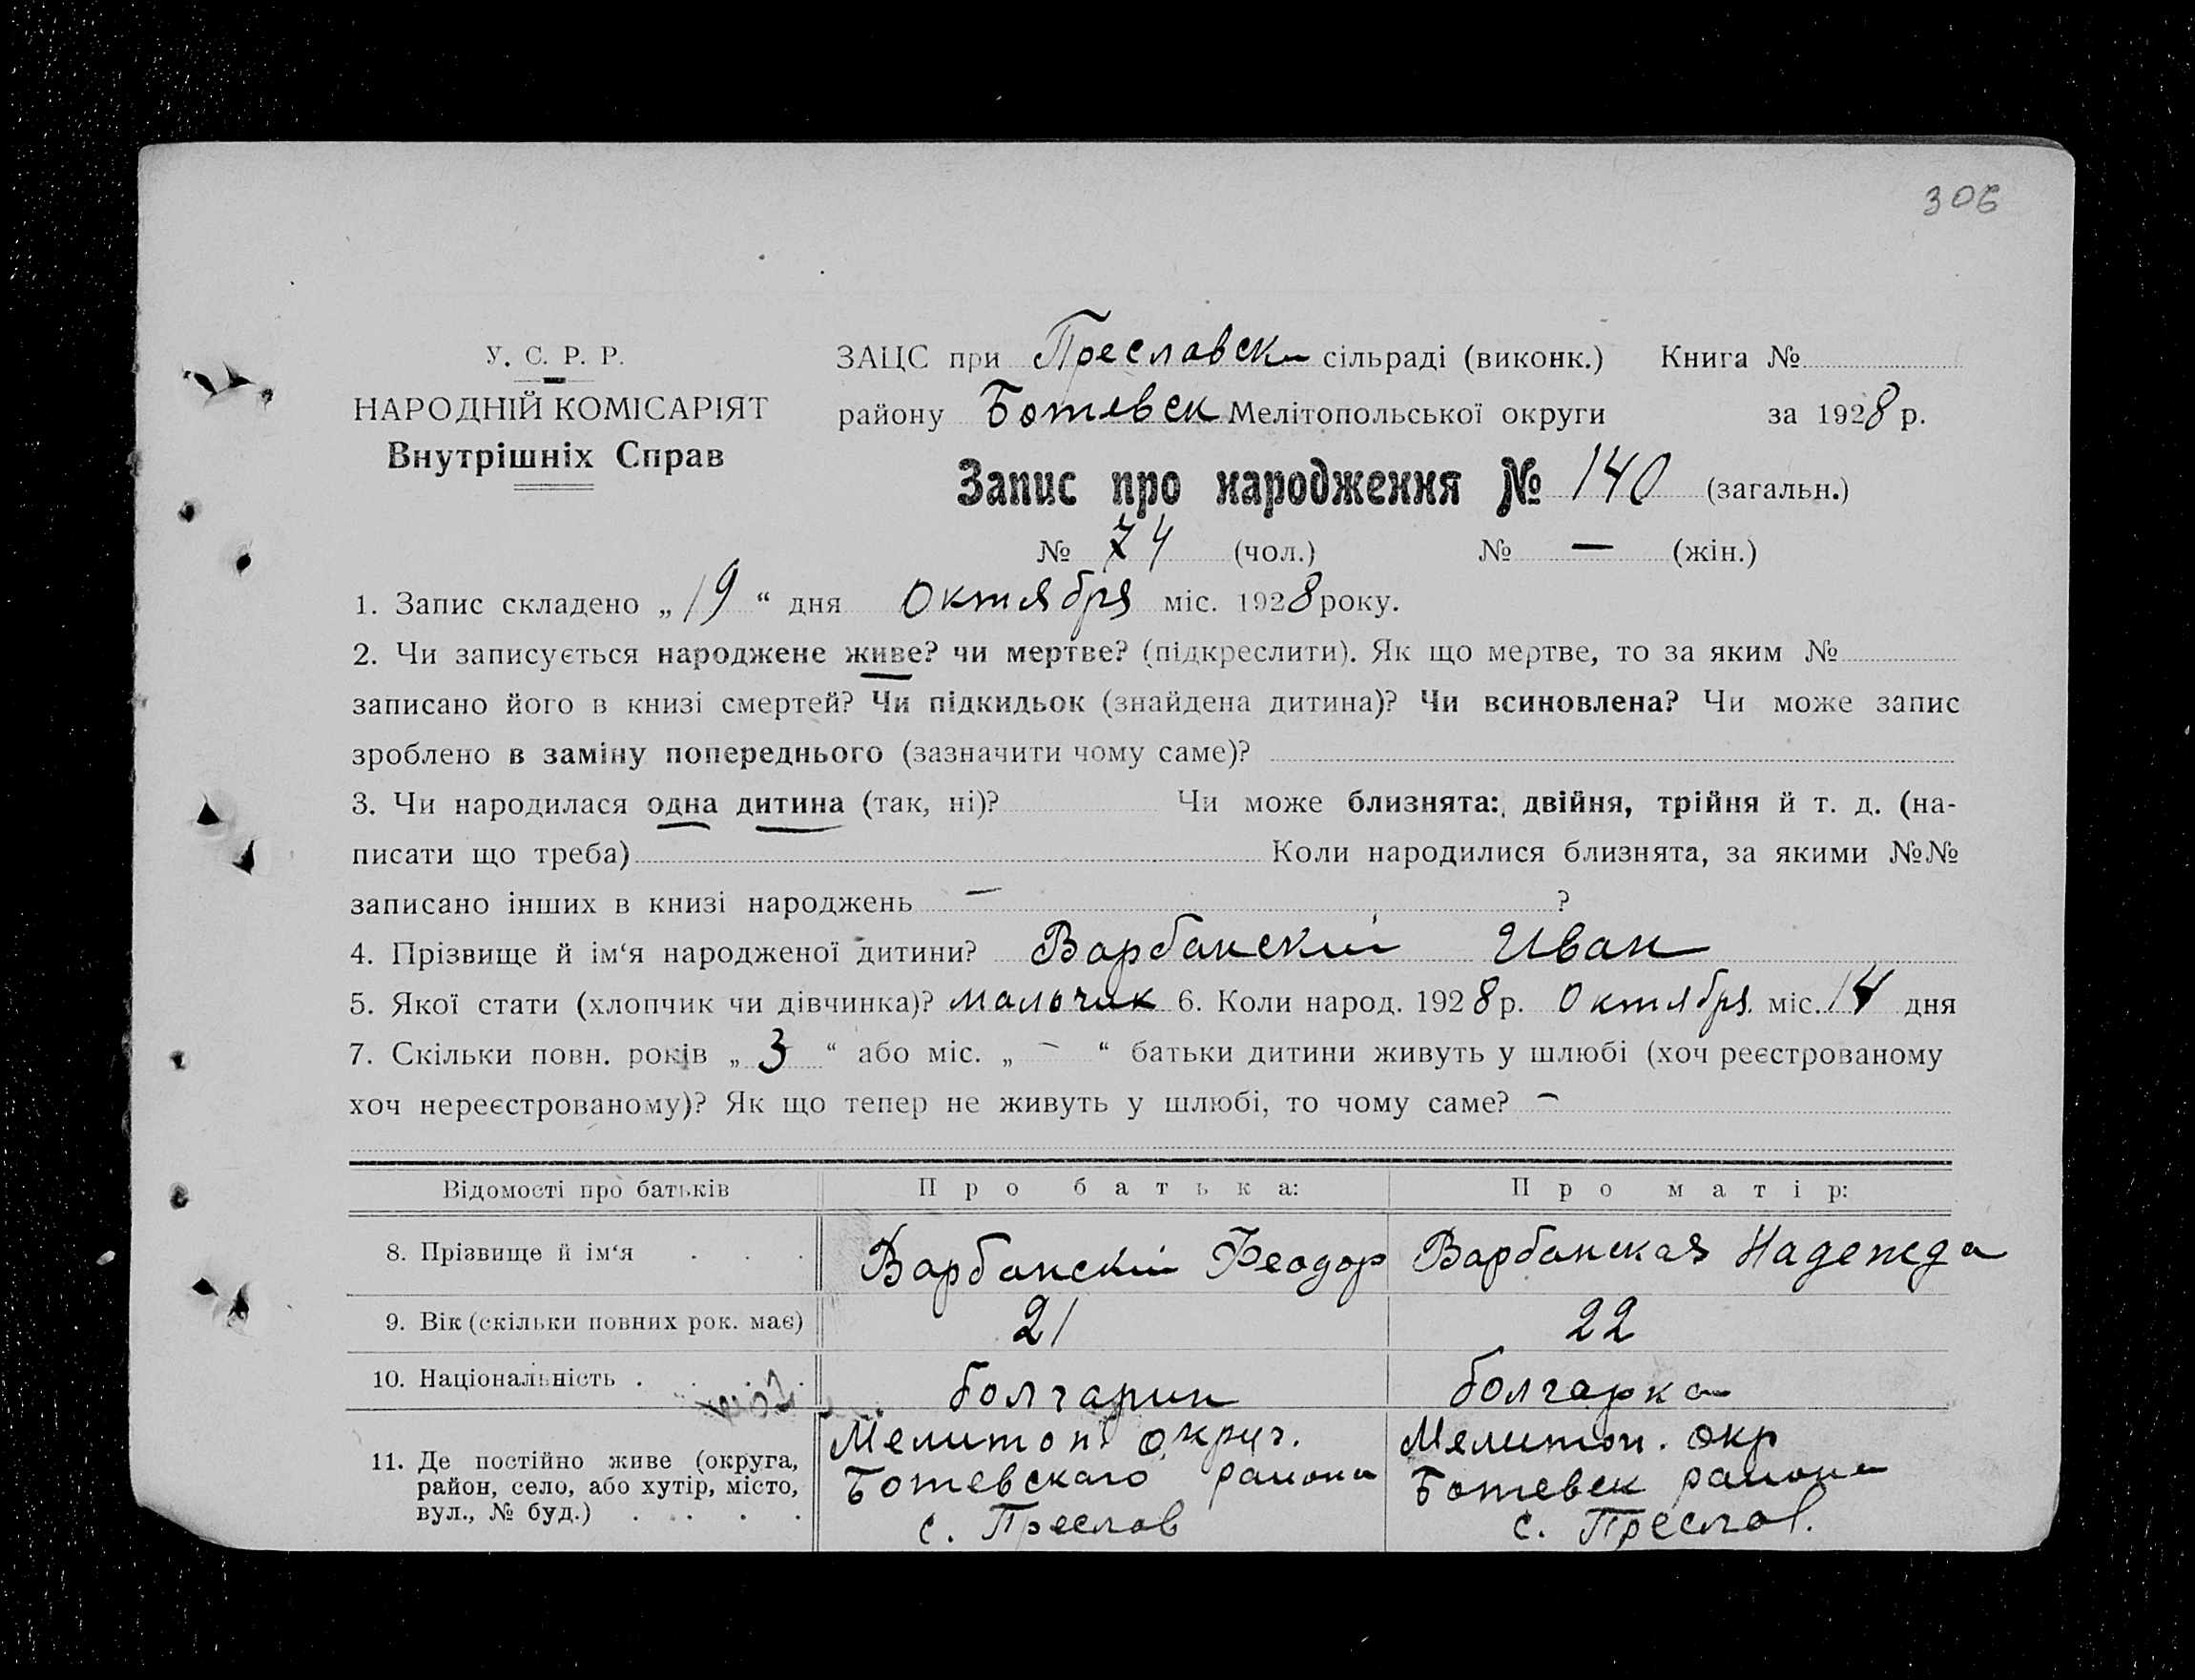 306
У. С. Р. Р.
НАРОДНІЙ КОМІСАРІЯТ
Внутрішніх Справ
ЗАЦС при Преславски сільраді (виконк.) Книга №
району Ботевск Мелітопольської округи за 1928 р.
Запис про народження № 140 (загальн.)
№ 74 (чол.) № — (жін.)
1. Запис складено „19“ дня Октября міс. 1928 року.
2. Чи записується народжене живе? чи мертве? (підкреслити). Як що мертве, то за яким №
записано його в книзі смертей? Чи підкидьок (знайдена дитина)? Чи всиновлена? Чи може запис
зроблено в заміну попереднього (зазначити чому саме)?
3. Чи народилася одна дитина (так, ні)? Чи може близнята: двійня, трійня й т. д. (на-
писати що треба) Коли народилися близнята, за якими №№
записано інших в книзі народжень — ?
4. Прізвище й ім‘я народженої дитини? Варбанский Иван
5. Якої стати (хлопчик чи дівчинка)? мальчик 6. Коли народ. 1928 р. Октября міс. 14 дня
7. Скільки повн. років „3“ або міс. „—“ батьки дитини живуть у шлюбі (хоч реєстрованому
хоч нереєстрованому)? Як що тепер не живуть у шлюбі, то чому саме? —
Відомості про батьків Про батька: Про матір:
8. Прізвище й ім‘я . . . Варбанскій Феодор Варбанская Надежда
9. Вік (скільки повних рок. має) 21 22
10. Національність . . . . болгарин болгарка
11. Де постійно живе (округа, район, село, або хутір, місто, вул., № буд.) . . . .
Мелитоп. округ. Мелитоп. окр
Ботевскаго района Ботевск района
с. Преслав с. Преслав.